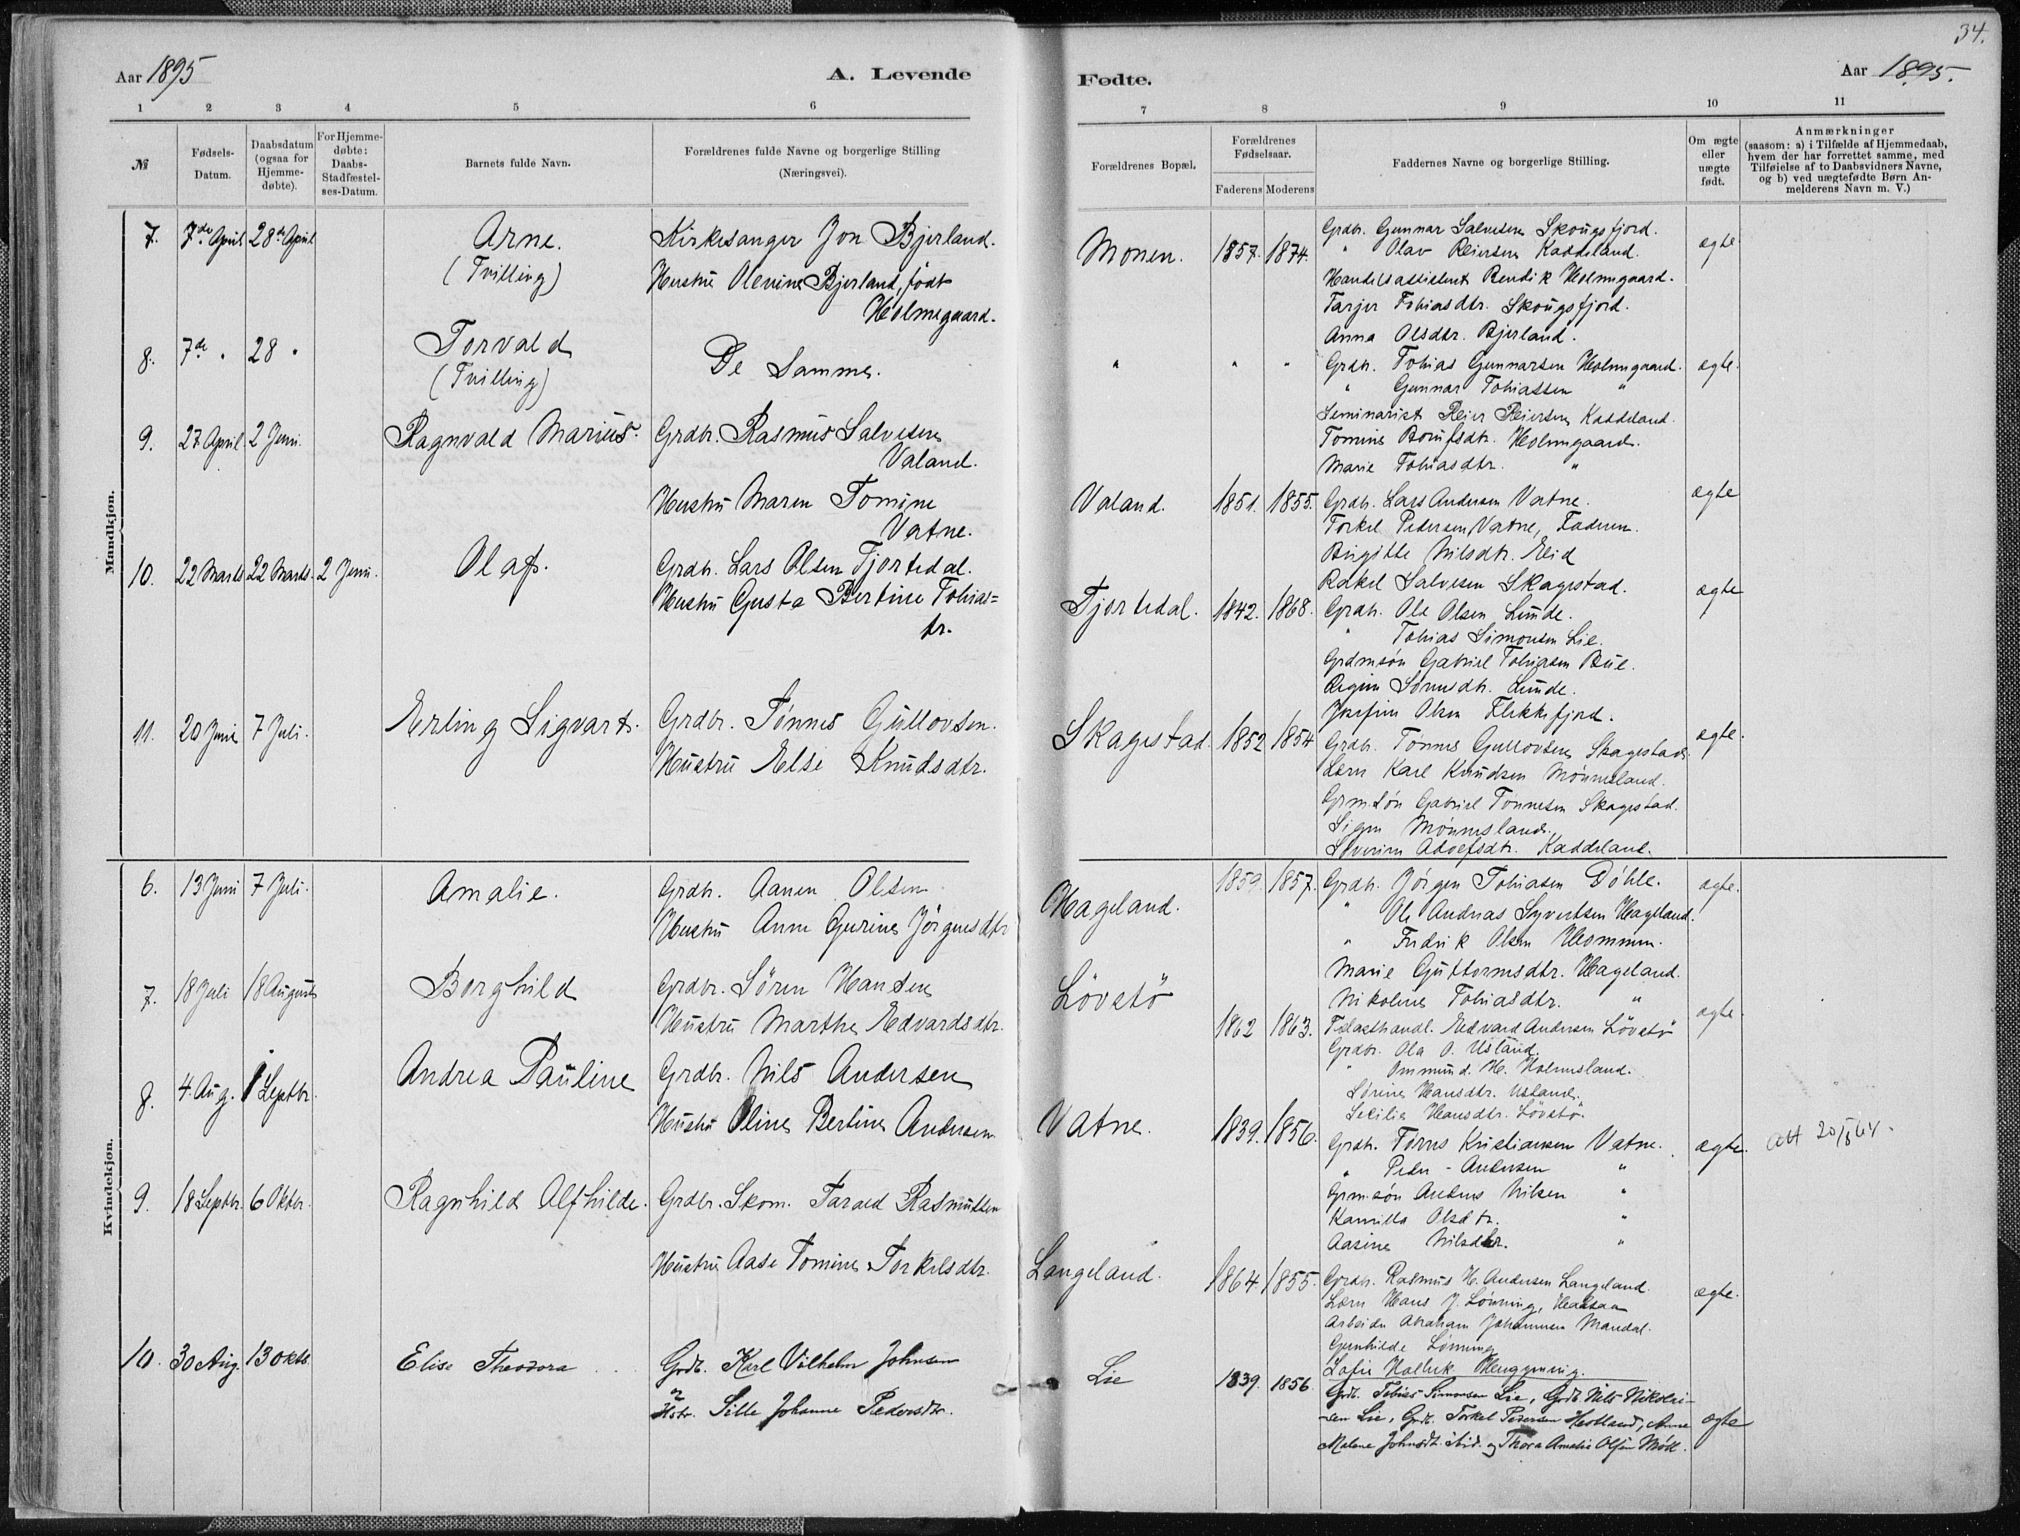 34.
Aar 1895
A. Levende
Fødte.
Aar 1895.
1 2 3 4 5 6 7 8 9 10 11
№
Fødsels-Datum.
Daabsdatum (ogsaa for Hjemme-døbte).
For Hjemme-døbte: Daabs-Stadfæstel-ses-Datum.
Barnets fulde Navn.
Forældrenes fulde Navne og borgerlige Stilling (Næringsvei).
Forældrenes Bopæl.
Forældrenes Fødselsaar.
Faderens Moderens
Faddernes Navne og borgerlige Stilling.
Om ægte eller uægte født.
Anmærkninger (saasom: a) i Tilfælde af Hjemmedaab, hvem der har forrettet samme, med Tilføielse af to Daabsvidners Navne, og b) ved uægtefødte Børn An-melderens Navn m. V.)
Mandkjøn.
7. 7de April 28de April Arne. (Tvilling)
Kirkesanger Jon Bjerland.
Hustru Olevine Bjerland, født
Holmegaard.
Monen. 1857. 1874.
Grdbr. Gunnar Salvesen Skougsfjord.
" Olav Reiersen Kaddeland.
Handelsassistent Bendik Holmegaard.
Tarjer Tobiasdtr. Skougsfjord.
Anna Olsdtr. Bjerland.
ægte
8. 7de " 28 " Torvald (Tvilling)
De Samme.
" " "
Grdbr. Tobias Gunnarsen Holmegaard.
" Gunnar Tobiassen "
Seminarist Reier Reiersen Kaddeland.
Tomine Borufsdtr. Holmegaard.
Marie Tobiasdtr. "
ægte.
9. 27 April 2 Juni. Ragnvald Marius.
Grdbr. Rasmus Salvesen
Valand.
Hustru Maren Tomine
Vatne.
Valand. 1851. 1855.
Grdbr. Lars Andersen Vatne.
Torkel Pedersen Vatne, Faderen.
Birgitte Nilsdtr. Eid
Rakel Salvesen Skagestad.
ægte
10. 22 Marts 22 Marts. 2 Juni. Olaf.
Grdbr. Lars Olsen Fjortedal.
Hustru Gusta Bertine Tobias=
tr.
Fjortedal. 1842. 1868.
Grdbr. Ole Olsen Lunde.
" Tobias Simonsen Lie.
Grdmsøn Gabriel Tobiasen Bue.
Regine Sørensdtr. Lunde.
Josefine Olsen Flekkefjord.
ægte
11. 20 Juni 7 Juli. Erling Sigvart.
Grdbr. Tønnes Gullovsen.
Hustru Else Knudsdtr.
Skagestad. 1852 1854
Grdbr. Tønnes Gullovsen Skagestad.
Lærer Karl Knudsen Mønnesland.
Grmsøn Gabriel Tønnesen Skagestad.
Sigrn Mønnesland.
Severine Adolfsdtr. Kaddeland.
ægte.
Kvindekjøn.
6. 13 Juni 7 Juli. Amalie.
Grdbr. Aanen Olsen
Hustru Anne Gurine Jørgensdtr
Hageland. 1859. 1857.
Grdbr. Jørgen Tobiasen Døhle.
" Ole Andreas Syvertsen Hageland.
" Fredrik Olsen Hommen.
Marie Guttormsdtr. Hageland.
Nikoline Tobiasdtr. "
ægte.
7. 18 Juli 18 August Borghild
Grdbr. Søren Hansen
Hustru Marthe Edvardsdtr.
Løvstø 1862 1863.
Edvard Andersen Løvstø
Grdbr. Ola O. Usland.
" Ommund H. Holmesland.
Sørine Hansdtr. Usland.
Secilie Hansdtr. Løvstø.
ægte.
8. 4. Aug. 1 Septbr. Andrea Pauline
Grdbr. Nils Andersen
Hustru Oline Bertine Andersen
Vatne. 1839. 1856.
Grdbr. Torres Kristiansen Vatne.
" Peder - Andersen "
Grmsøn Anders Nilsen "
Kamilla Olsdtr. "
Aasine Nilsdtr. "
ægte. att 20/8 64.
9. 18 Septbr. 6 Oktbr. Ragnhild Alfhilde.
Grdbr. Skom. Tarald Rasmussen
Hustru Aase Tomine Torkelsdtr.
Langeland. 1864 1855.
Grdbr. Rasmus H. Andersen Langeland.
Lærer Hans J. Lønning,
Arbeider Abraham Johannesen Mandal.
Gunhilde Lønning
Sofie
ægte.
10. 30 Aug. 13 Oktb. Elise Theodora
Grdb. Karl Vilhelm Johnsen
Hstr. Sille Johanne Pedersdtr.
Lie 1839. 1856.
Grdb. Tobias Simonsen Lie, Grdb Nils Nikolai-
sen Lie, Grdb. Torkel Pedersen Hesland, Anne
Malene Johnsdtr. ibid. og Thora Amalie Olsen Møll.
ægte